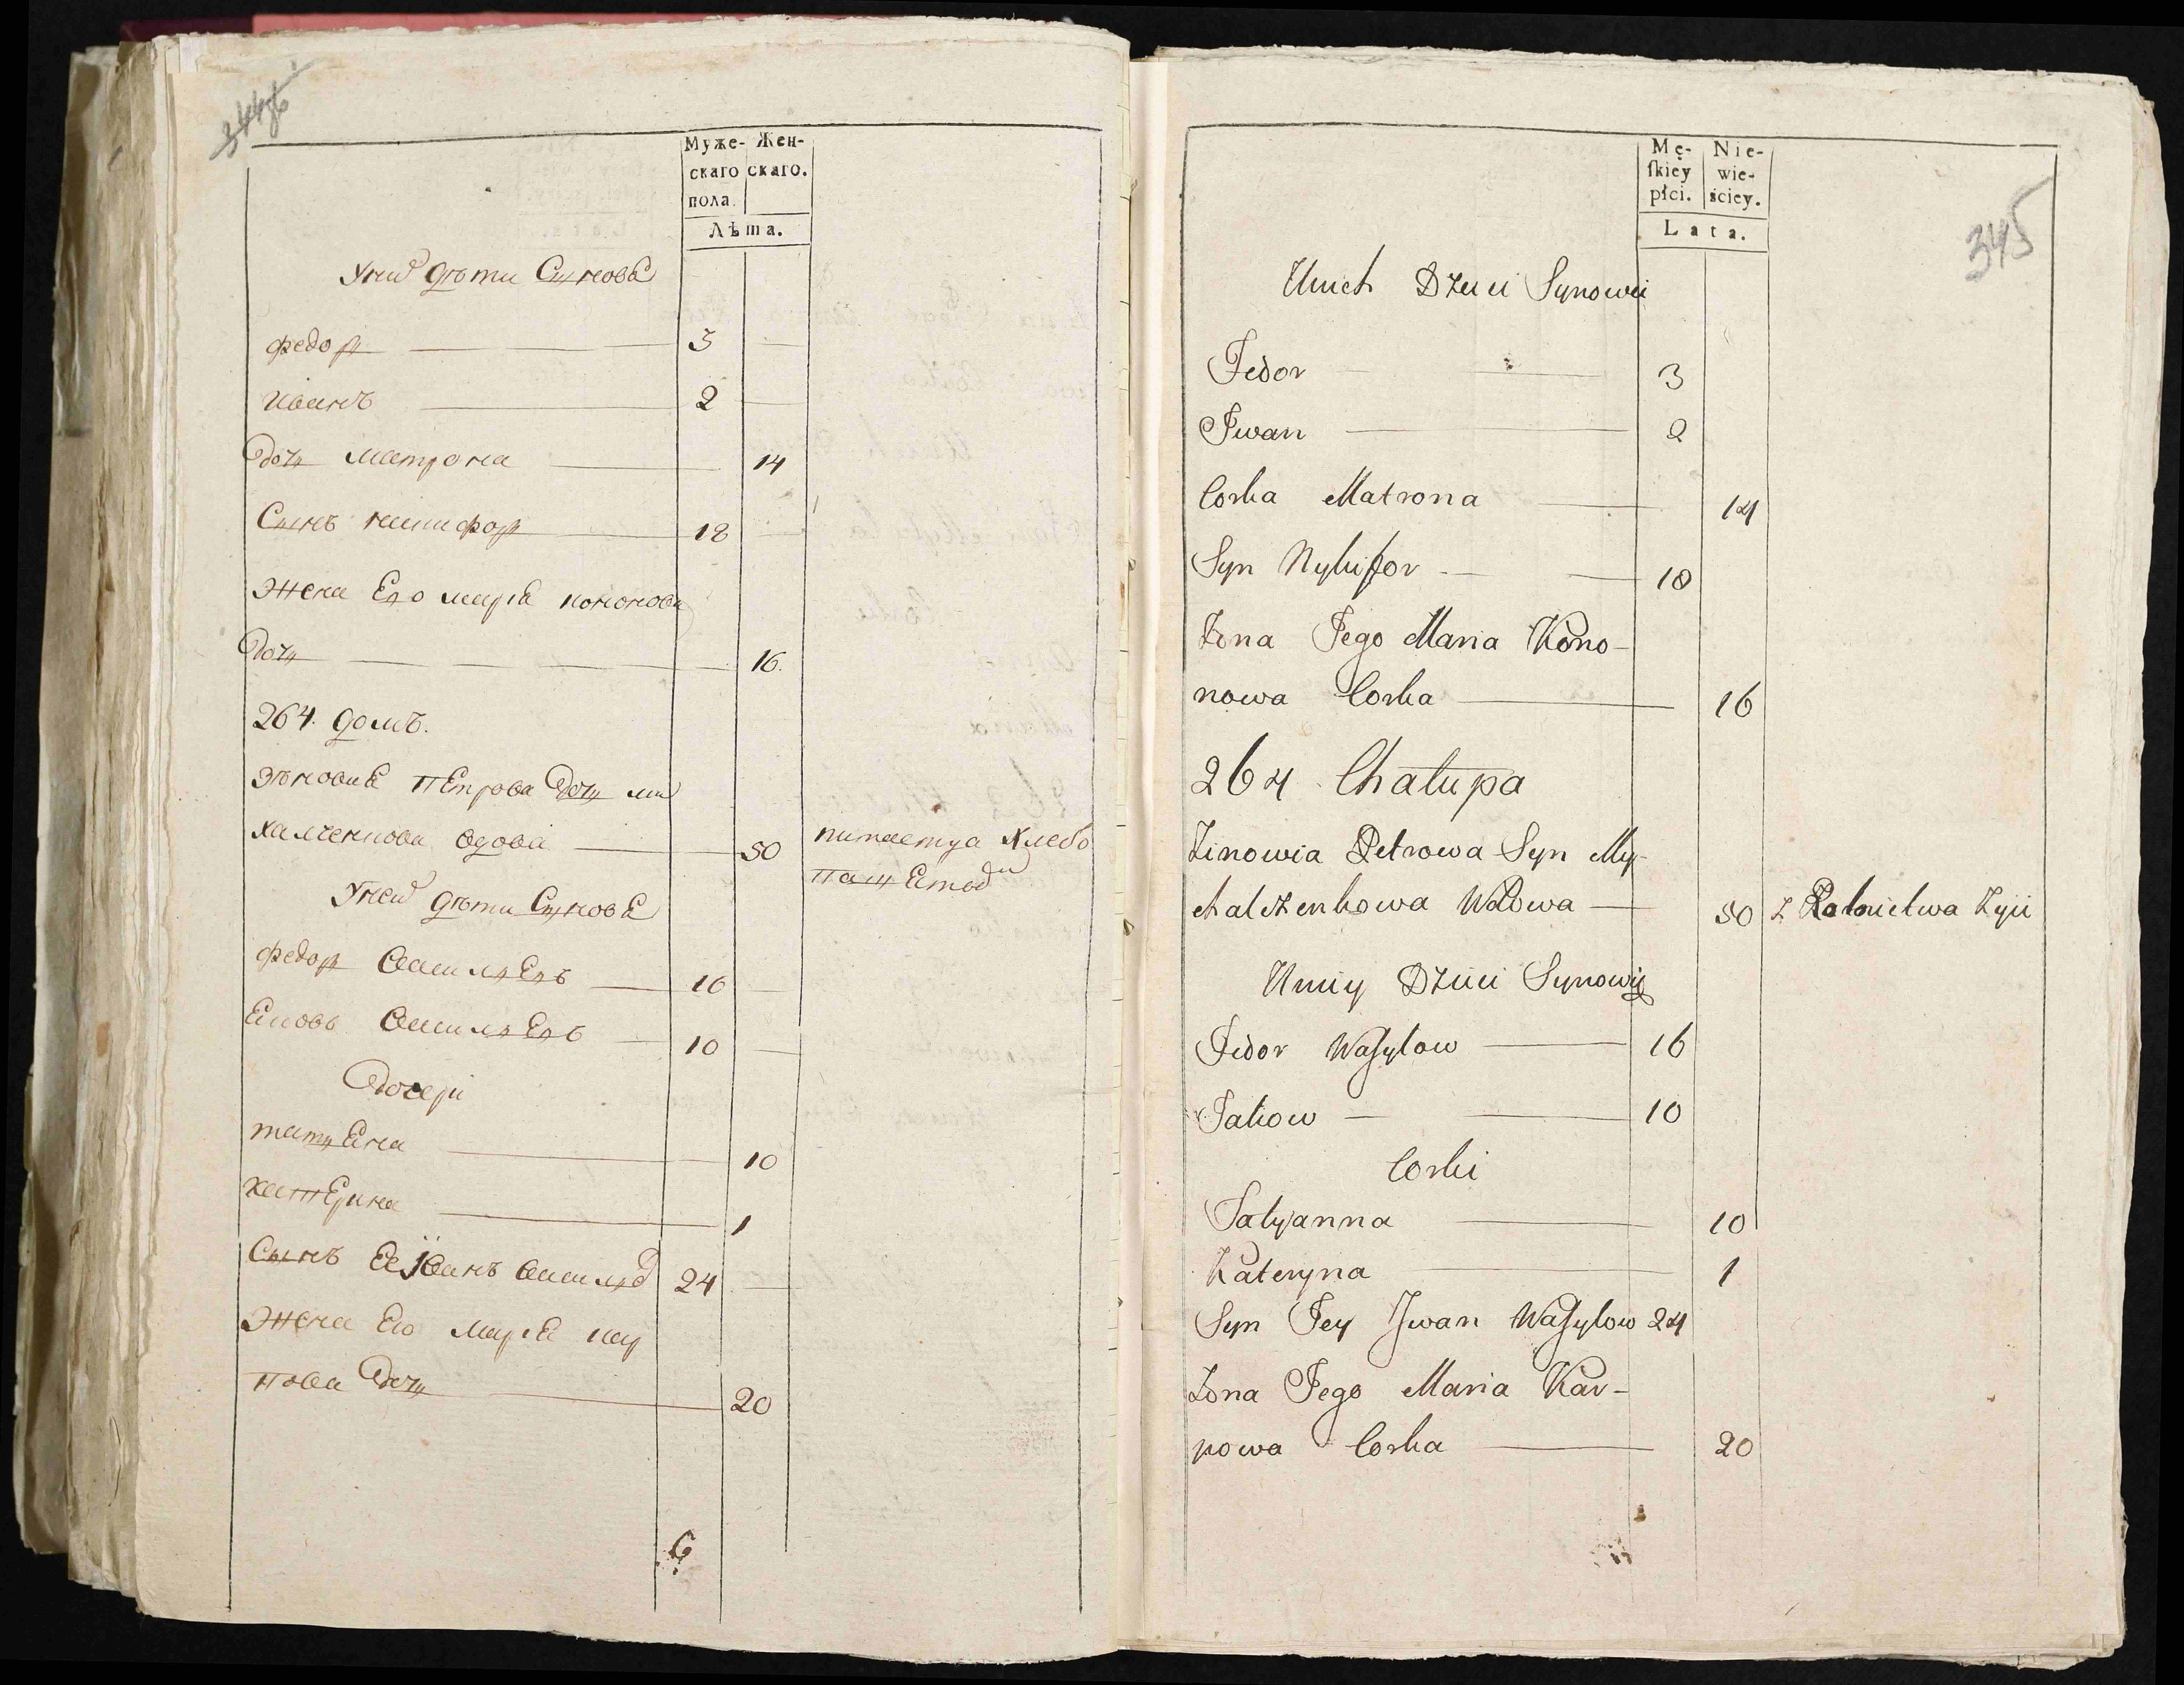 344 об
Муже- Жен-
скаго скаго.
пола.
Лѣта.
У них дѣти Сынова
федор 3
иванъ 2
Дочь матрона 14
Сынъ никифор 18
жена Его мария кононова
Дочь 16.
264. домъ.
зѣновиа пЕтрова Дочь ми
халченкова вдова 50 питаетца хлебо
пашЕством
У неи дѣти Сынова
федор васильЕвъ 16
Яковъ васильЕвъ 10
Дочери
татьЯна 10
катЕрина 1
Сынъ Ее Иванъ василев 24
жена Ево мариа кар
пова Дочь 20
345
Mę- Nie-
ſkiey wie-
płci. ściey.
Lata.
Unich Dzieci Synowei
Fedor 3
Iwan 2
Corka Matrona 14
Syn Nykifor 18
Zona Jego Maria Kono-
nowa Corka 16
264 Chałupa
Zinowia Petrowa Syn My-
chalczenkowa Wdowa 50 z Rolnictwa Zyii
Uniiy Dzieci Synowie
Fedor Waſylow 16
Jakow 10
Corki
Tatyanna 10
Kateryna 1
Syn Jey Iwan Waſylow 24
Zona Jego Maria Kar-
powa Corka 20